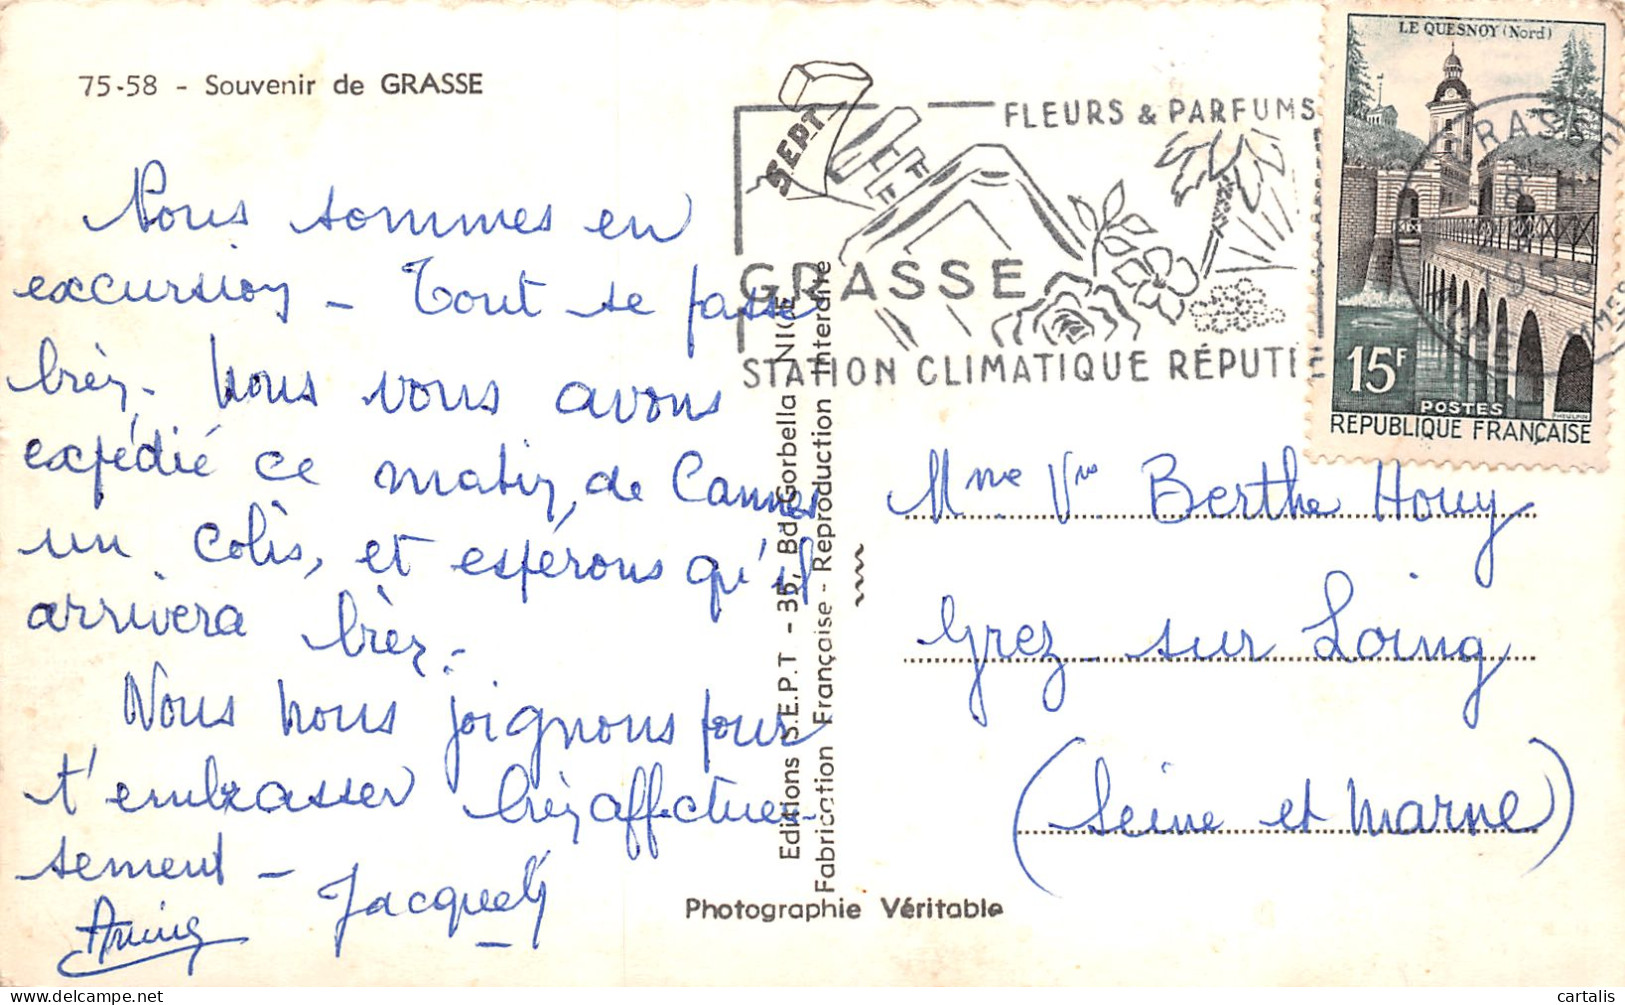 75-58 - Souvenir de GRASSE
Nous sommes en
excursion - Tout se passe
bien. Nous vous avons
expédié ce matin, de Cannes
un colis, et espérons qu'il
arrivera bien.
Nous nous joignons pour
t'embrasser bien affectueu-
sement -
Jacquely
SEPT
FLEURS & PARFUMS
GRASSE
STATION CLIMATIQUE RÉPUTÉE
LE QUESNOY (Nord)
15F
POSTES
REPUBLIQUE FRANÇAISE
GRASSE
1958
Editions S.E.P.T - 35, Bd Gorbella NICE
Fabrication Française - Reproduction Interdite
Mme Vve Berthe Houy
Grez-sur Loing
(Seine et Marne)
Photographie Véritable
cartalis
delcampe.net